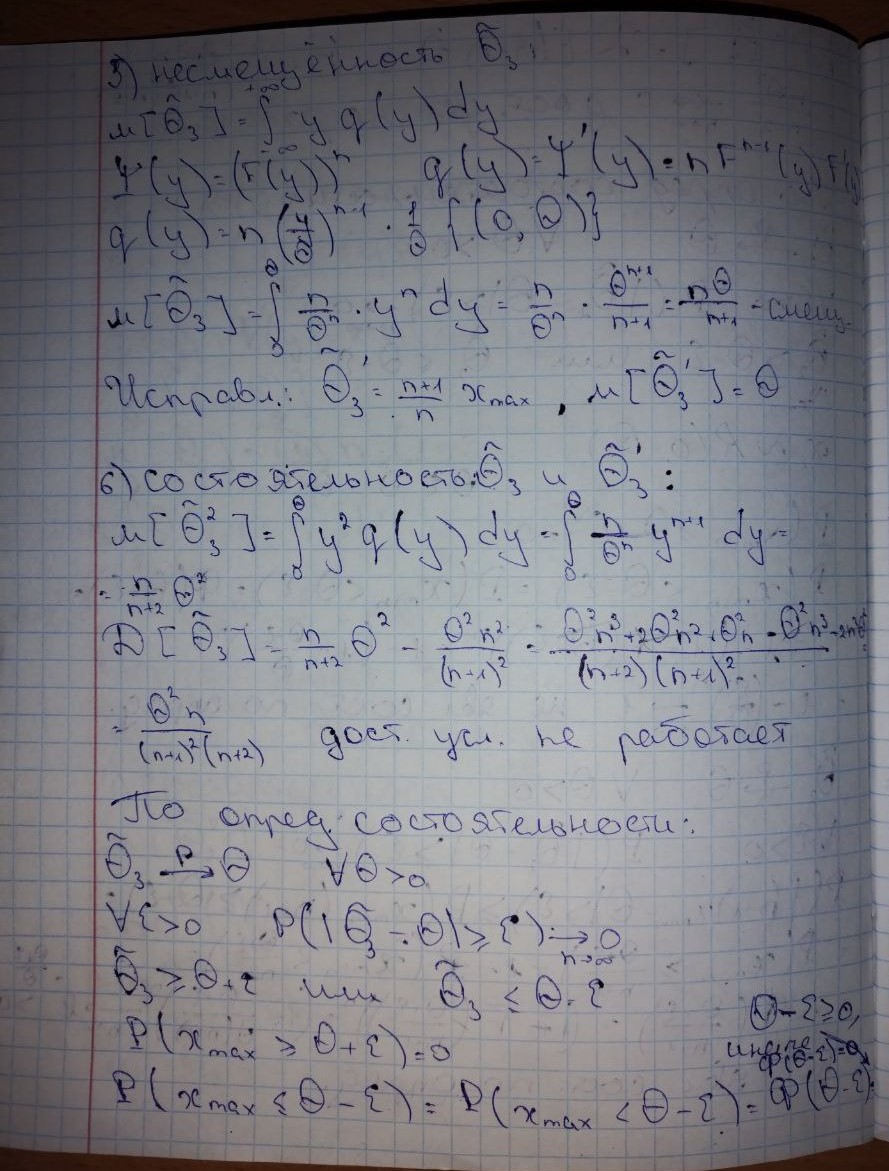 5) несмещённость Θ̃₃:
м[Θ̃₃] = ∫_{-∞}^{+∞} y q(y) dy
Ψ(y) = (F(y))ⁿ q(y) = Ψ'(y) = n Fⁿ⁻¹(y) F'(y)
q(y) = n (y/Θ)ⁿ⁻¹ · 1/Θ {(0, Θ)}
м[Θ̃₃] = ∫₀^Θ n/Θⁿ · yⁿ dy = n/Θⁿ · Θⁿ⁺¹/(n+1) = nΘ/(n+1) - смещ.
Исправл.: Θ̃₃' = (n+1)/n xmax, м[Θ̃₃'] = Θ
6) состоятельность: Θ̃₃ и Θ̃₃':
м[Θ̃₃²] = ∫₀^Θ y² q(y) dy = ∫₀^Θ n/Θⁿ yⁿ⁺¹ dy =
= n/(n+2) Θ²
D[Θ̃₃] = n/(n+2) Θ² - Θ²n²/(n+1)² = (Θ²n³ + 2Θ²n² + Θ²n - Θ²n³ - 2n²Θ²)/((n+2)(n+1)²) =
= Θ²n/((n+1)²(n+2)) дост. усл. не работает
По опред. состоятельности:
Θ̃₃ →ᴾ Θ ∀Θ>0
∀ε>0 P(|Θ̃₃ - Θ| ≥ ε) → 0 n→∞
Θ̃₃ ≥ Θ+ε или Θ̃₃ ≤ Θ-ε
P(xmax ≥ Θ+ε) = 0
Θ-ε≥0,
иначе
φ(Θ-ε)=0
P(xmax ≤ Θ-ε) = P(xmax < Θ-ε) = φ(Θ-ε)